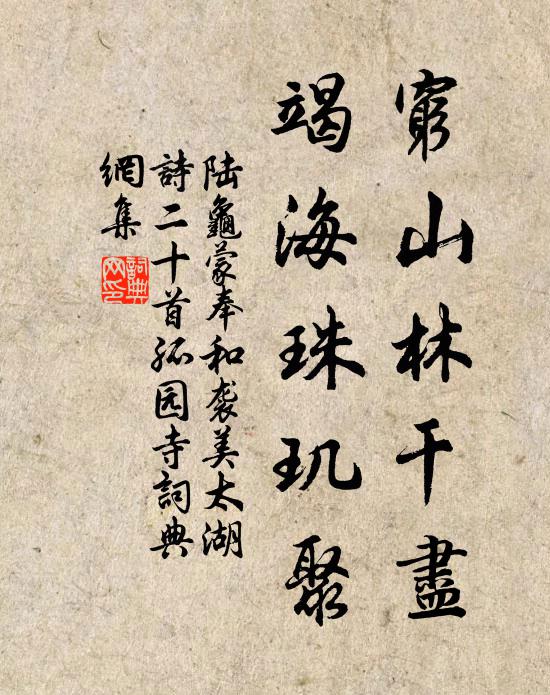 窮山林干盡
竭海珠玑聚
陆龜蒙奉和袭美太湖
詩二十首孤园寺詞典
網集
詞典
网印